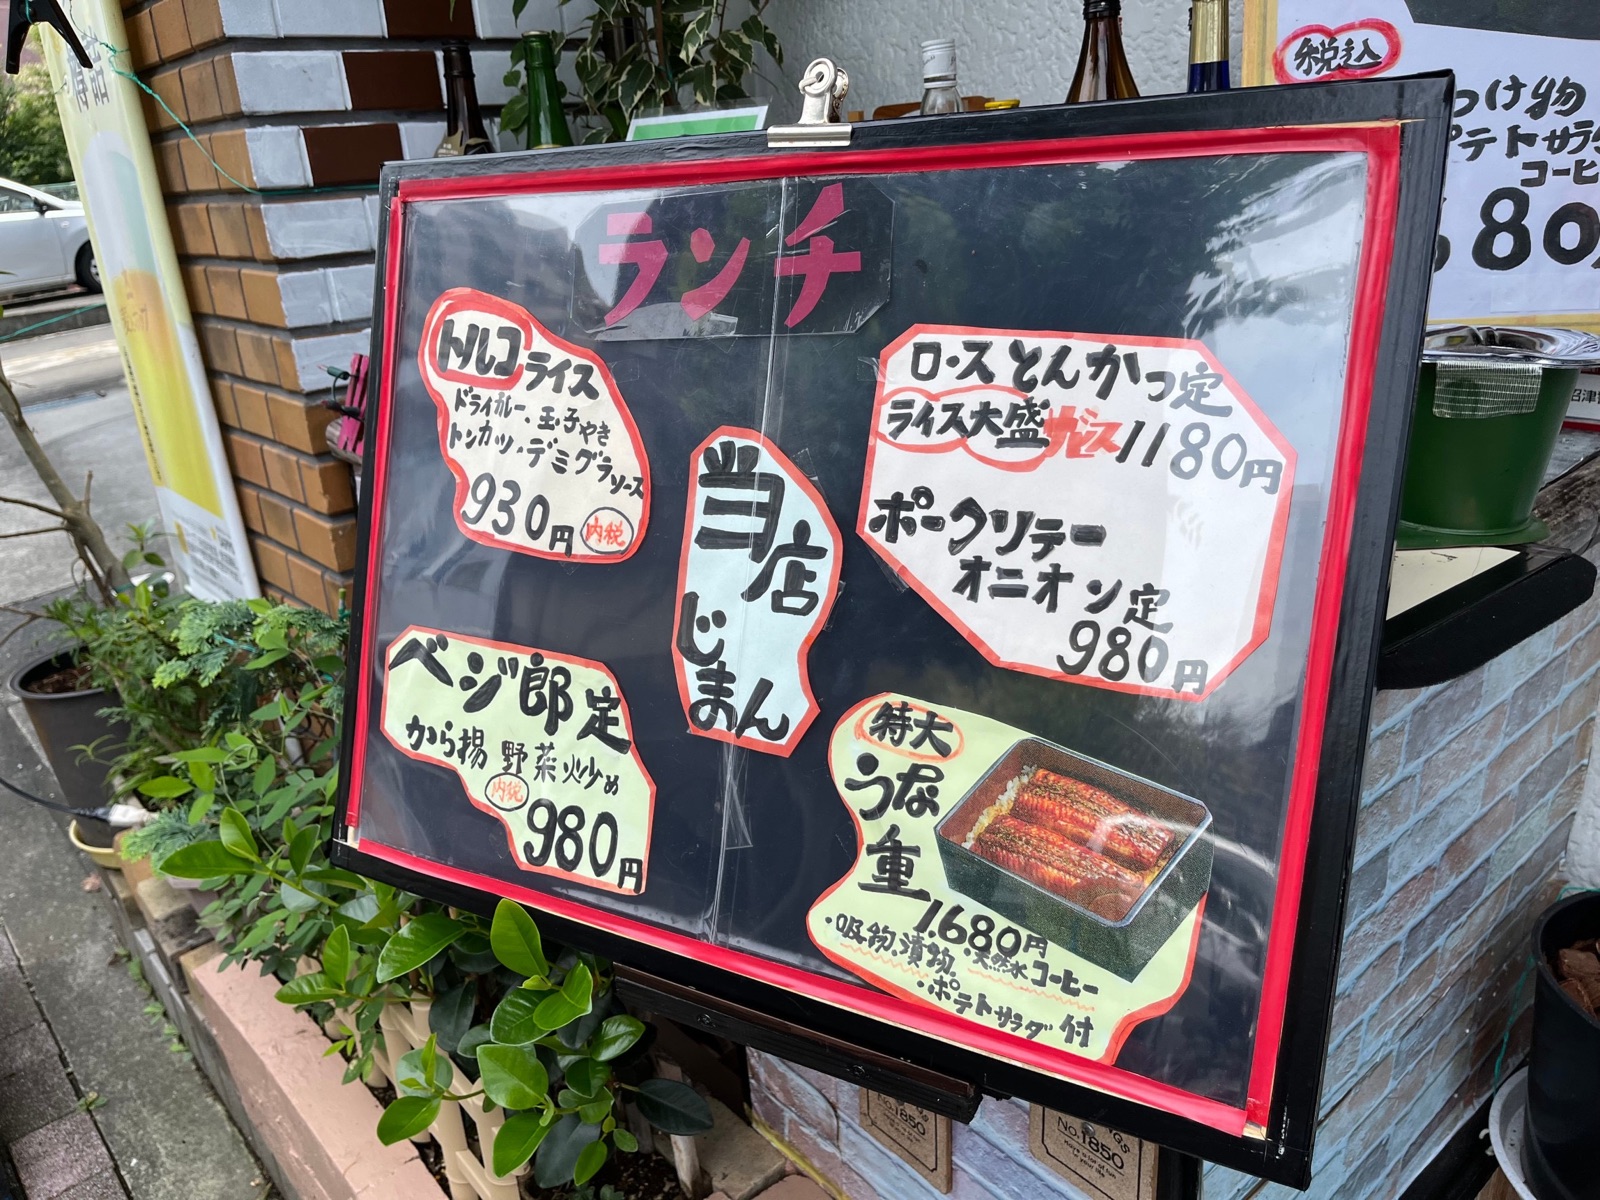 ランチ
トルコライス
ドライカレー・玉子やき
トンカツ・デミグラソース
930円 内税
当店じまん
ロースとんかつ定
ライス大盛サービス 1180円
ポークソテー
オニオン定
980円
ベジ郎定
から揚 野菜炒め
内税 980円
特大
うな重
1.680円
・吸物、漬物、天然水 コーヒー
・ポテトサラダ付
税込
つけ物
ポテトサラダ
コーヒ
80
沼津
No.1850
No.1850